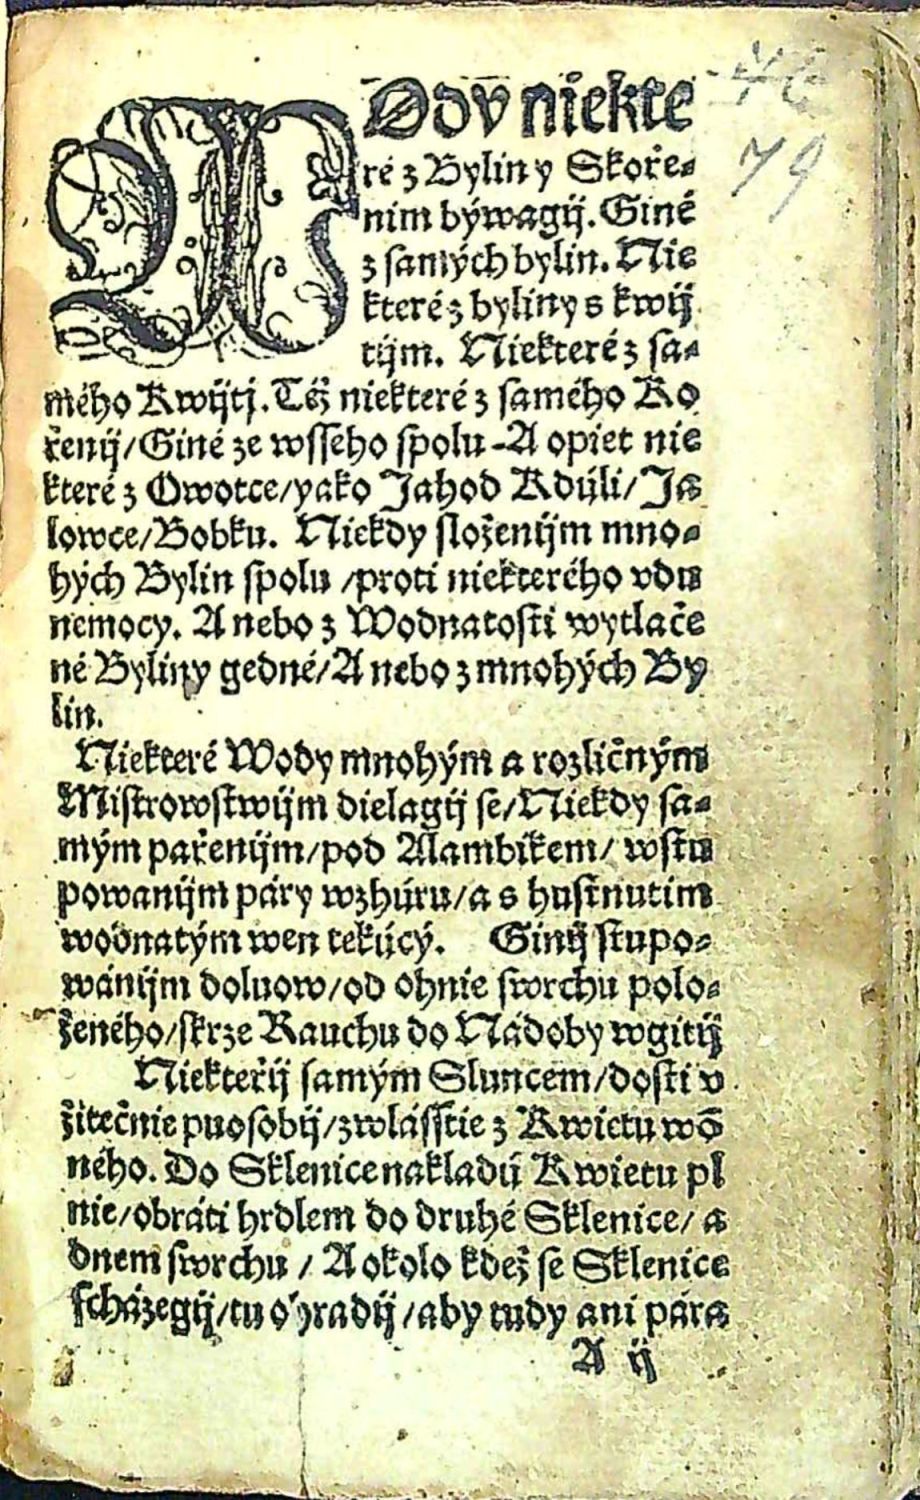 WOdy niekte
ré z Byliny Skoře⸗
nim býwagij. Giné
z samých bylin. Nie
které z byliny s kwij
tijm. Niekteré z sa⸗
mého Kwijtj. Též niekteré z samého Ko
řenij/Giné ze wsseho spolu-A opiet nie
které z Owotce/yako Jahod Kdýli/Ja
lowce/Bobku. Niekdy složenijm mno⸗
hých Bylin spolu /proti niekterého vdu
nemocy. A nebo z Wodnatosti wytlače
né Byliny gedné/A nebo z mnohých By
lin.
Niekteré Wody mnohým a rozličným
Mistrowstwijm dielagij se/Niekdy sa⸗
mým pařenijm/pod Alambikem/ wstu
powanijm páry wzhúru/a s hustnutim
wodnatým wen tekúcý. Ginij stupo⸗
wánijm doluow/od ohnie swrchu polo⸗
ženého/skrze Rauchu do Nádoby wgitij
Niekteřij samým Sluncem/dosti v
žitečnie puosobij/zwlásstie z Kwietu wō
ného. Do Sklenice nakladú Kwietu pl
nie/obráti hrdlem do druhé Sklenice/ a
dnem swrchu / A okolo kdež se Sklenice
scházegij/tu ohradij/aby tudy ani pára
A ij
79